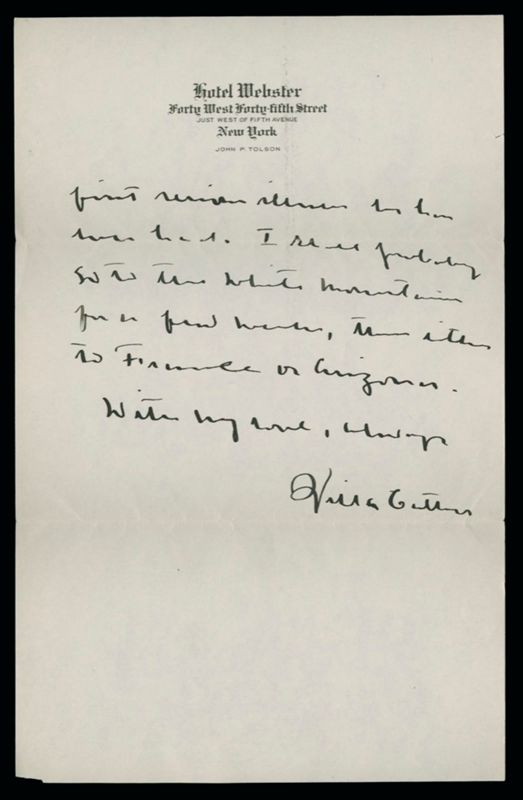 Hotel Webster
Forty West Forty-fifth Street
JUST WEST OF FIFTH AVENUE
New York
JOHN P. TOLSON
first serious illness she has
ever had. I shall probably
go to the White Mountains
for a few weeks, then either
to France or Arizona.
With my love, always
Willa Cather